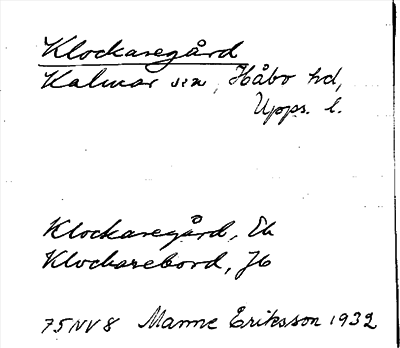 Klockaregård
Kalmar sn, Håbo hd,
Upps. l.
Klockaregård, Ek
Klockarebord, Jb
75NV8 Manne Eriksson 1932